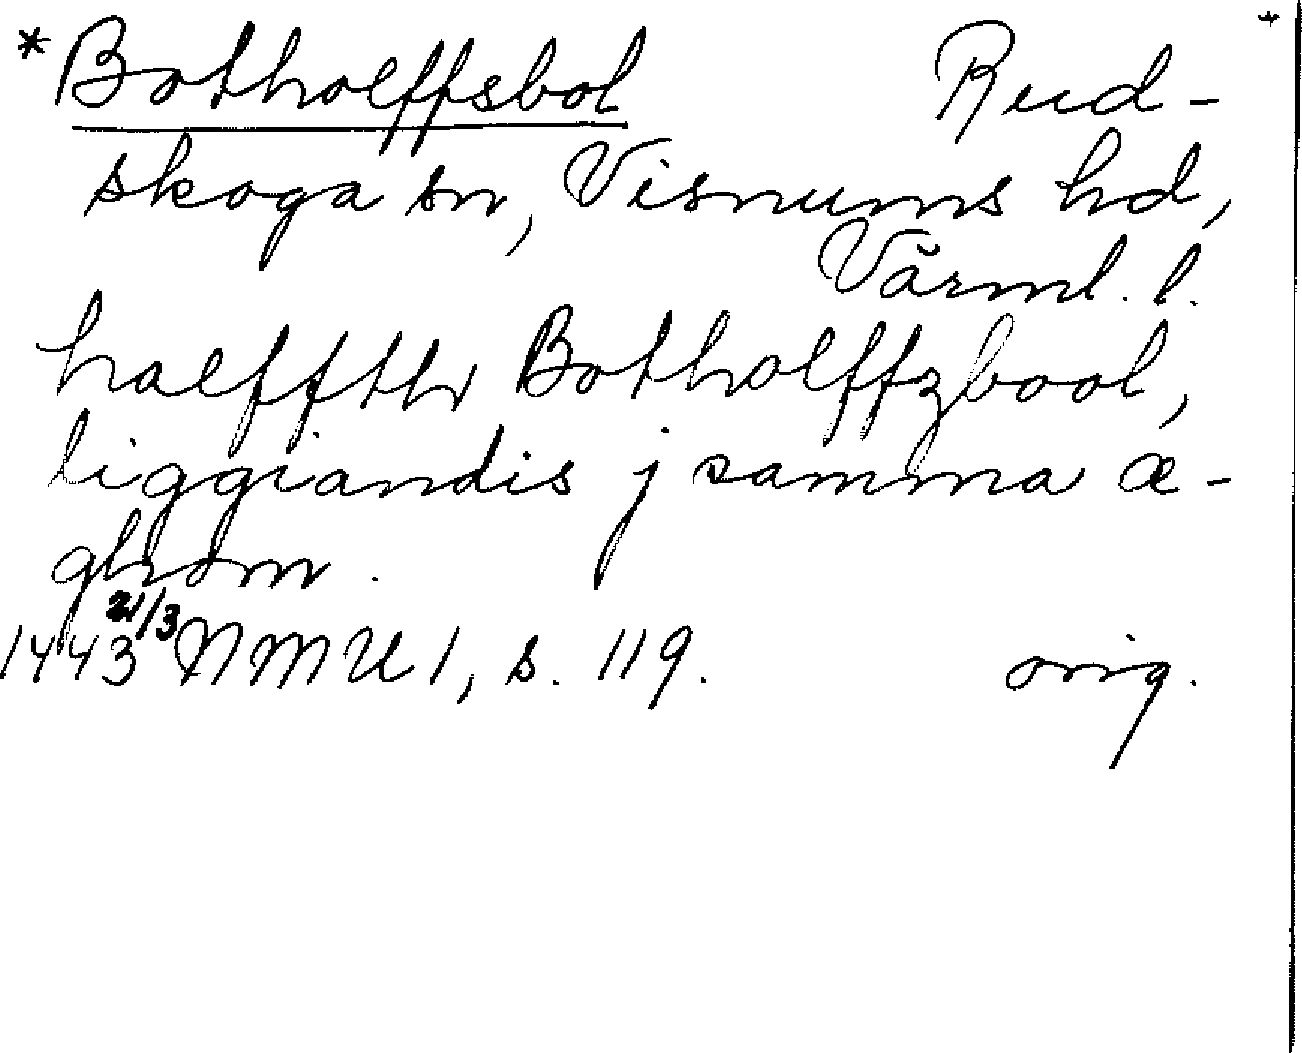 * Botholffsbol Rud-
skoga sn, Visnums hd,
Värml. l.
halffth Botholffzbool,
liggiandis j samma æ-
ghom.
1443 21/3 NMU 1, s. 119. orig.